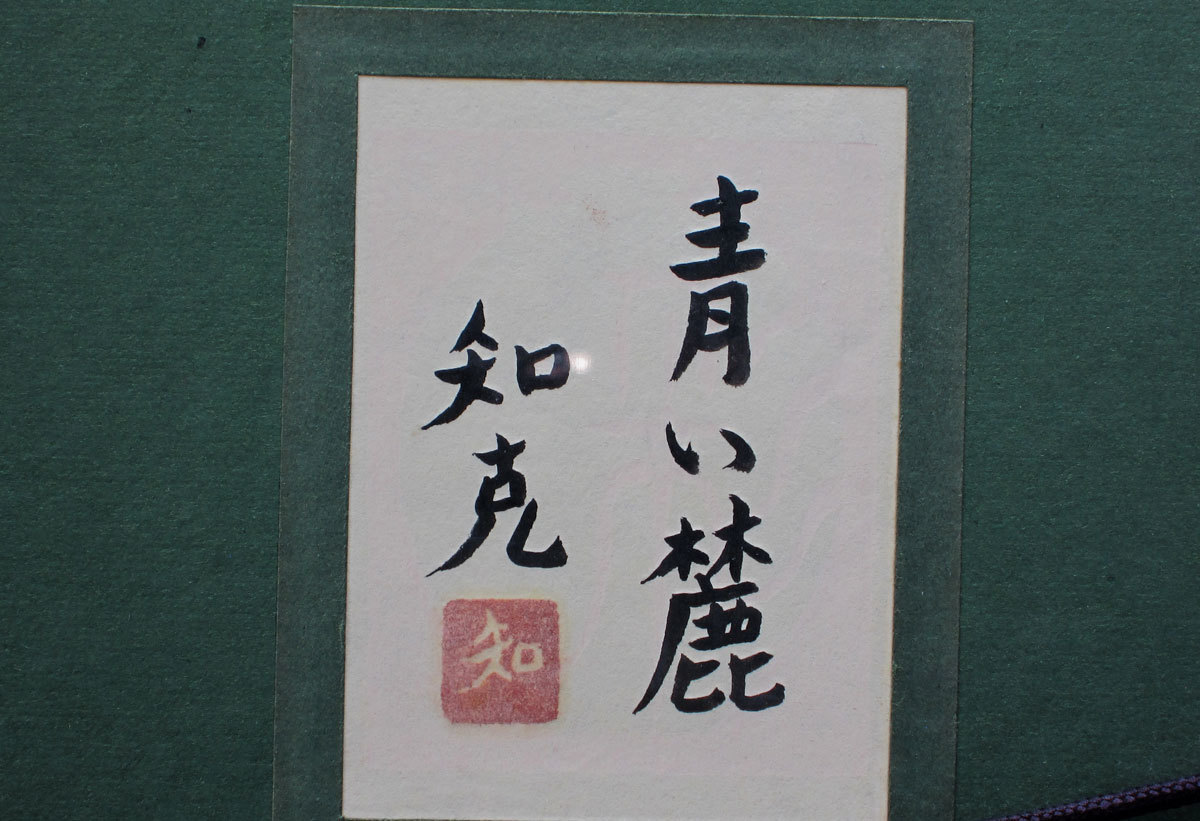 青い麓
知克
知